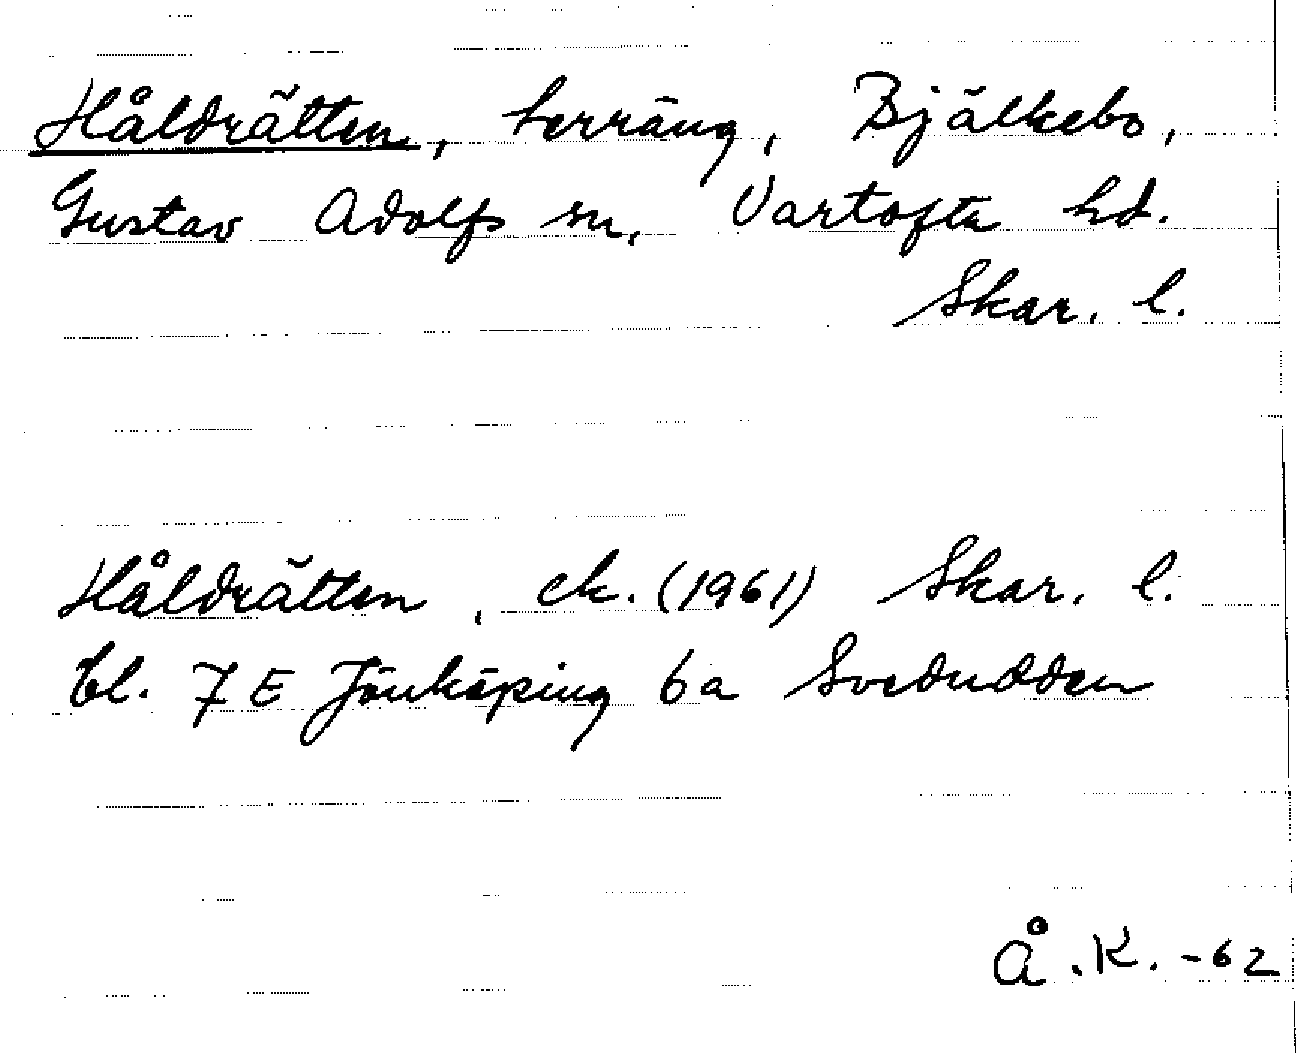 Håldrätten, terräng, Bjälkebo,
Gustav Adolfs sn, Vartofta hd.
Skar. l.
Håldrätten, ek. (1961) Skar. l.
bl. 7 E Jönköping 6a Svedudden
Å.K. -62